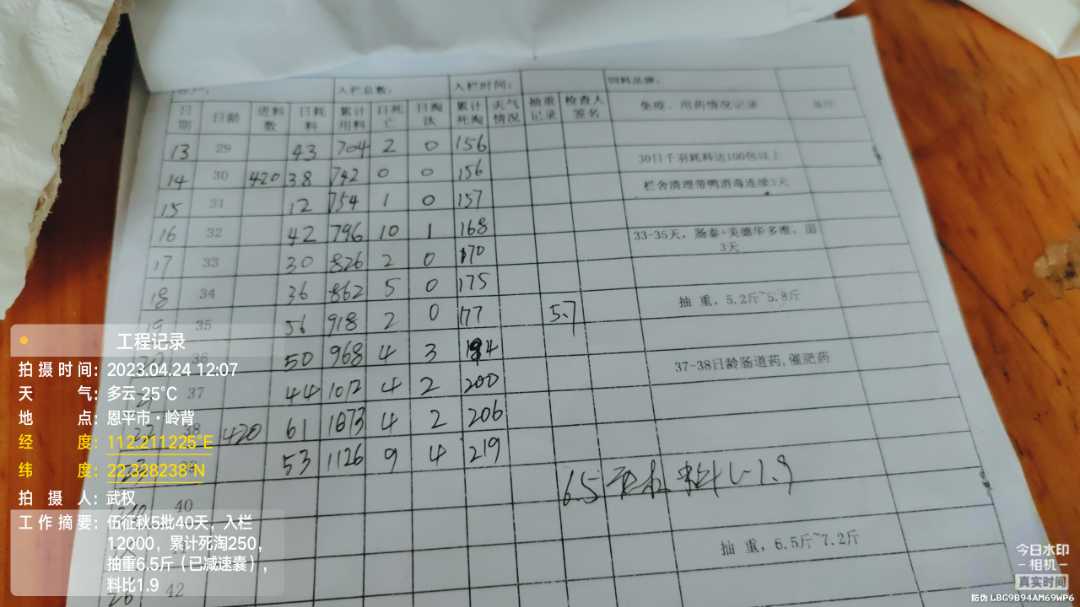 入栏总数： 入栏时间： 饲料品牌：
日期 日龄 进料数 日耗料 累计用料 日死亡 日淘汰 累计死淘 天气情况 抽重记录 检查人签名 免疫、用药情况记录 备注
13 29 43 704 2 0 156
14 30 420 38 742 0 0 156 30日千羽耗料达100包以上
15 31 12 754 1 0 157 栏舍清理带鸭消毒连续3天
16 32 42 796 10 1 168
17 33 30 826 2 0 170 33-35天，肠泰+美德华多维，
3天
18 34 36 862 5 0 175
19 35 56 918 2 0 177 5.7 抽 重，5.2斤~5.8斤
36 50 968 4 3 184
37 44 1012 4 2 200 37-38日龄肠道药,催肥药
38 420 61 1073 4 2 206
23 53 1126 9 4 219
40 6.5 料比1.9
抽 重，6.5斤~7.2斤
42
工程记录
拍摄时间：2023.04.24 12:07
天 气：多云 25℃
地 点：恩平市·岭背
经 度：112.211225°E
纬 度：22.328238°N
拍 摄 人：武权
工作摘要：伍征秋5批40天，入栏
12000，累计死淘250，
抽重6.5斤（已减速囊），
料比1.9
今日水印
-相机-
真实时间
防伪 LBG9B94AM69WP6